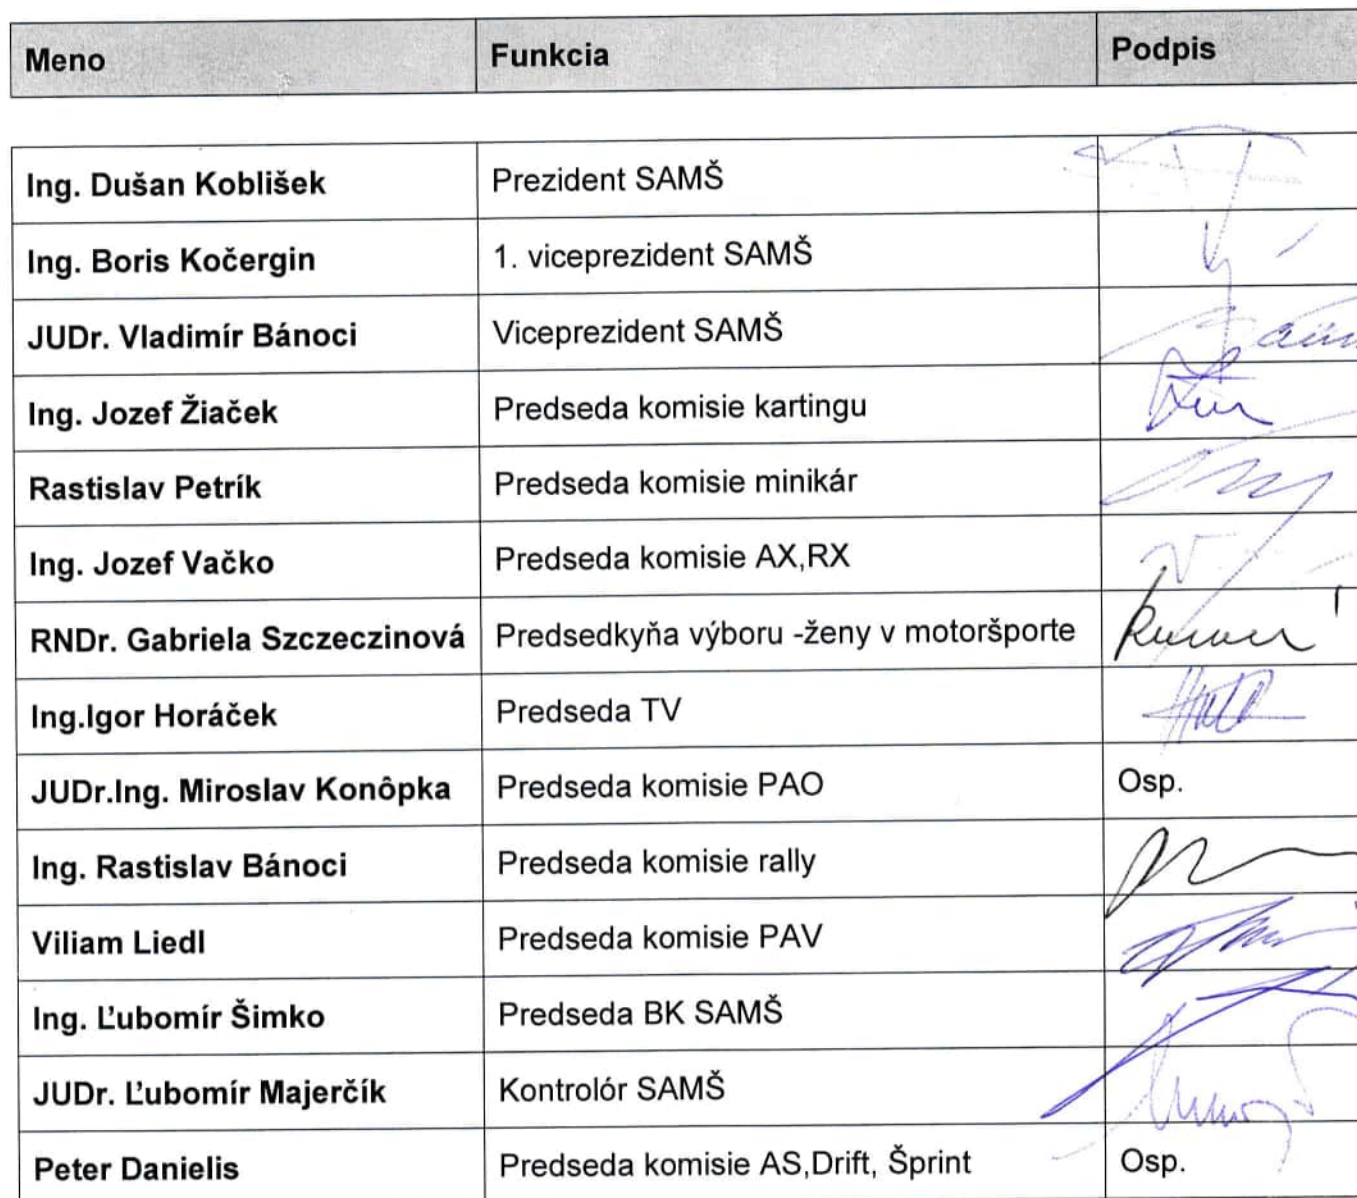 Meno Funkcia Podpis
Ing. Dušan Koblišek Prezident SAMŠ
Ing. Boris Kočergin 1. viceprezident SAMŠ
JUDr. Vladimír Bánoci Viceprezident SAMŠ
Ing. Jozef Žiaček Predseda komisie kartingu
Rastislav Petrík Predseda komisie minikár
Ing. Jozef Vačko Predseda komisie AX,RX
RNDr. Gabriela Szczeczinová Predsedkyňa výboru -ženy v motoršporte
Ing.Igor Horáček Predseda TV
JUDr.Ing. Miroslav Konôpka Predseda komisie PAO Osp.
Ing. Rastislav Bánoci Predseda komisie rally
Viliam Liedl Predseda komisie PAV
Ing. Ľubomír Šimko Predseda BK SAMŠ
JUDr. Ľubomír Majerčík Kontrolór SAMŠ
Peter Danielis Predseda komisie AS,Drift, Šprint Osp.